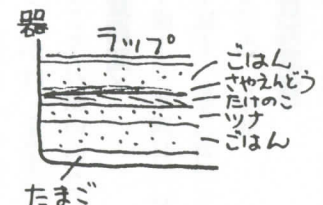 器
ラップ
ごはん
さやえんどう
たけのこ
ツナ
ごはん
たまご